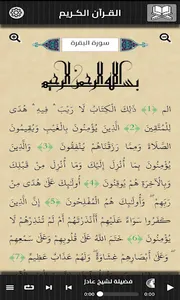 القرآن الكريم
سورة البقرة
بسم الله الرحمن الرحيم
الم ﴿1﴾ ذَلِكَ الْكِتَابُ لَا رَيْبَ فِيهِ هُدًى
لِلْمُتَّقِينَ ﴿2﴾ الَّذِينَ يُؤْمِنُونَ بِالْغَيْبِ وَيُقِيمُونَ
الصَّلَاةَ وَمِمَّا رَزَقْنَاهُمْ يُنْفِقُونَ ﴿3﴾ وَالَّذِينَ
يُؤْمِنُونَ بِمَا أُنْزِلَ إِلَيْكَ وَمَا أُنْزِلَ مِنْ قَبْلِكَ
وَبِالْآخِرَةِ هُمْ يُوقِنُونَ ﴿4﴾ أُولَئِكَ عَلَى هُدًى
مِنْ رَبِّهِمْ وَأُولَئِكَ هُمُ الْمُفْلِحُونَ ﴿5﴾ إِنَّ الَّذِينَ
كَفَرُوا سَوَاءٌ عَلَيْهِمْ أَأَنْذَرْتَهُمْ أَمْ لَمْ تُنْذِرْهُمْ لَا
يُؤْمِنُونَ ﴿6﴾ خَتَمَ اللَّهُ عَلَى قُلُوبِهِمْ وَعَلَى
سَمْعِهِمْ وَعَلَى أَبْصَارِهِمْ غِشَاوَةٌ وَلَهُمْ عَذَابٌ عَظِيمٌ
فضيلة لشيخ عادل
0:00
0:00